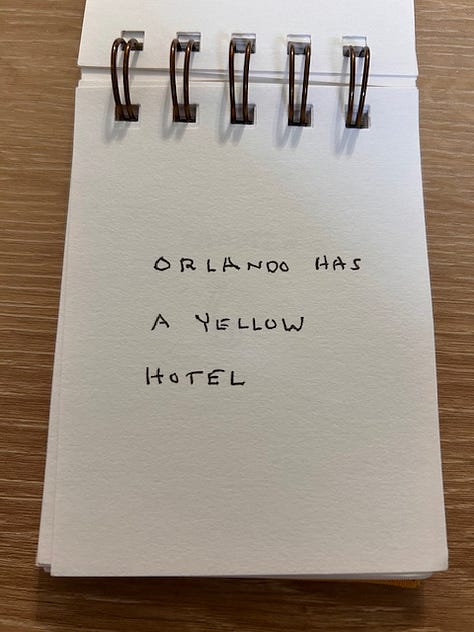 ORLANDO HAS
A YELLOW
HOTEL